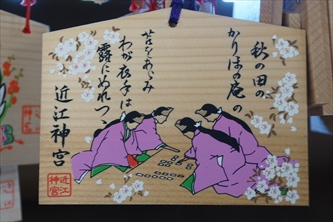 秋の田の
かりほの庵の
苫をあらみ
わが衣手は
露にぬれつゝ
近江神宮
近江
神宮